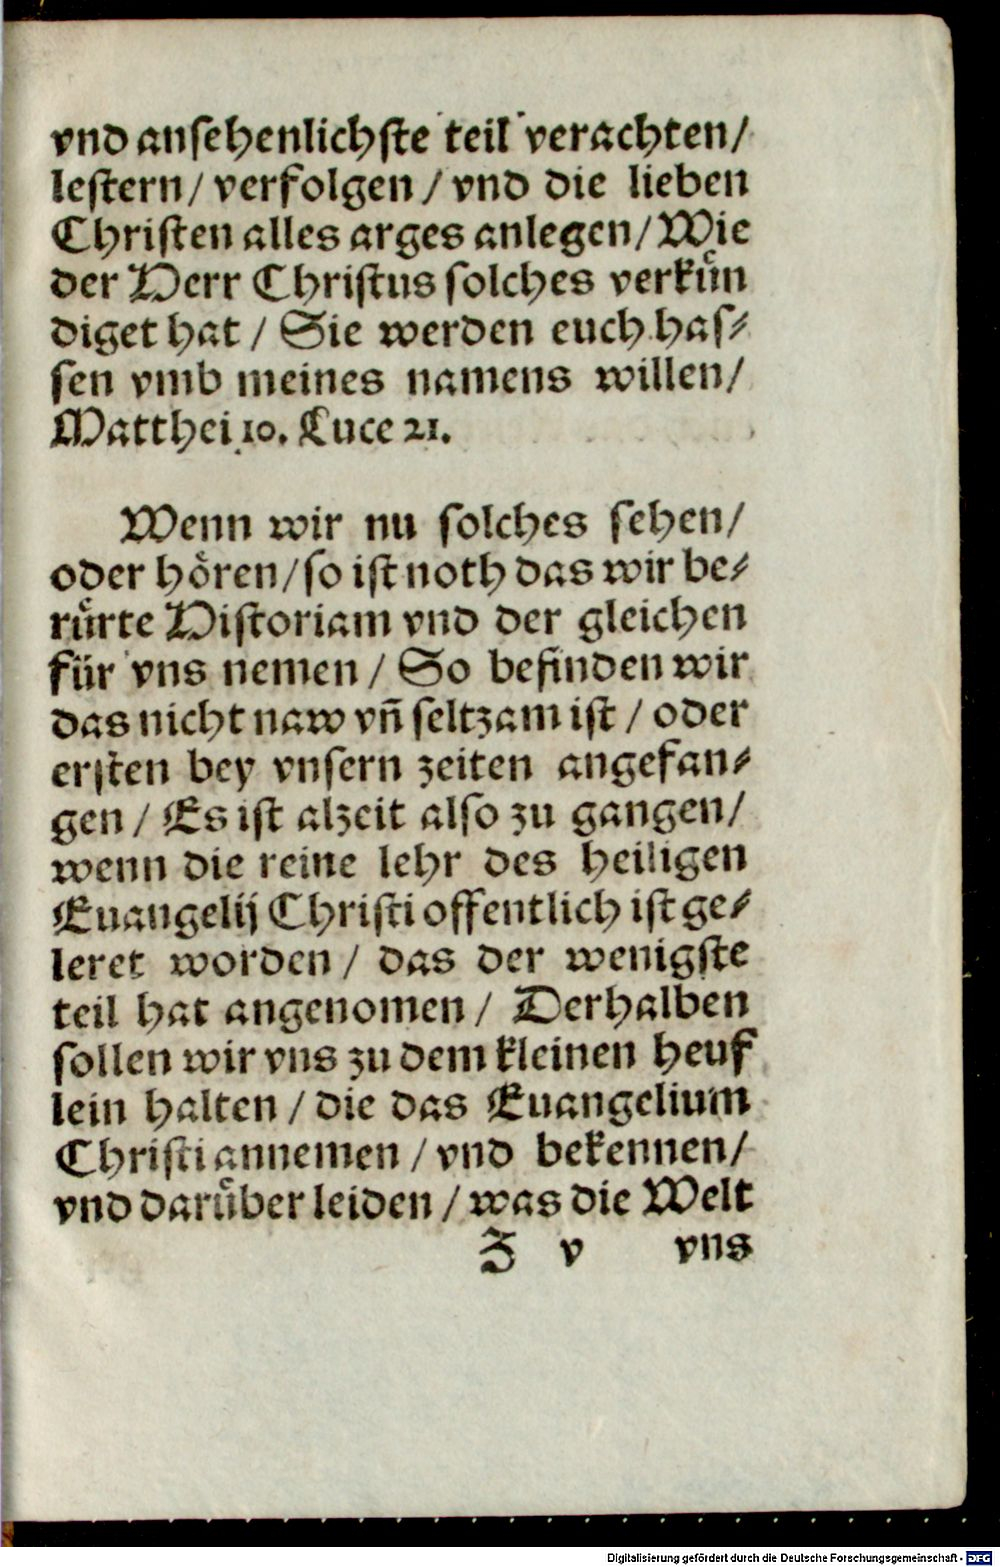 vnd anſehenlichſte teil verachten/
leſtern/ verfolgen / vnd die lieben
Chriſten alles arges anlegen/ Wie
der Herr Chriſtus ſolches verkuͤn
diget hat / Sie werden euch haſ⸗
ſen vmb meines namens willen/
Matthei 10. Luce 21.
Wenn wir nu ſolches ſehen/
oder hoͤren/ ſo iſt noth das wir be⸗
ruͤrte Hiſtoriam vnd der gleichen
für vns nemen / So befinden wir
das nicht naw vn̄ ſeltzam iſt / oder
erſten bey vnſern zeiten angefan⸗
gen / Es iſt alzeit alſo zu gangen/
wenn die reine lehr des heiligen
Euangelij Chriſti offentlich iſt ge⸗
leret worden / das der wenigſte
teil hat angenomen / Derhalben
ſollen wir vns zu dem kleinen heuf
lein halten / die das Euangelium
Chriſti annemen / vnd bekennen/
vnd daruͤber leiden / was die Welt
Z v vns
Digitalisierung gefördert durch die Deutsche Forschungsgemeinschaft - DFG